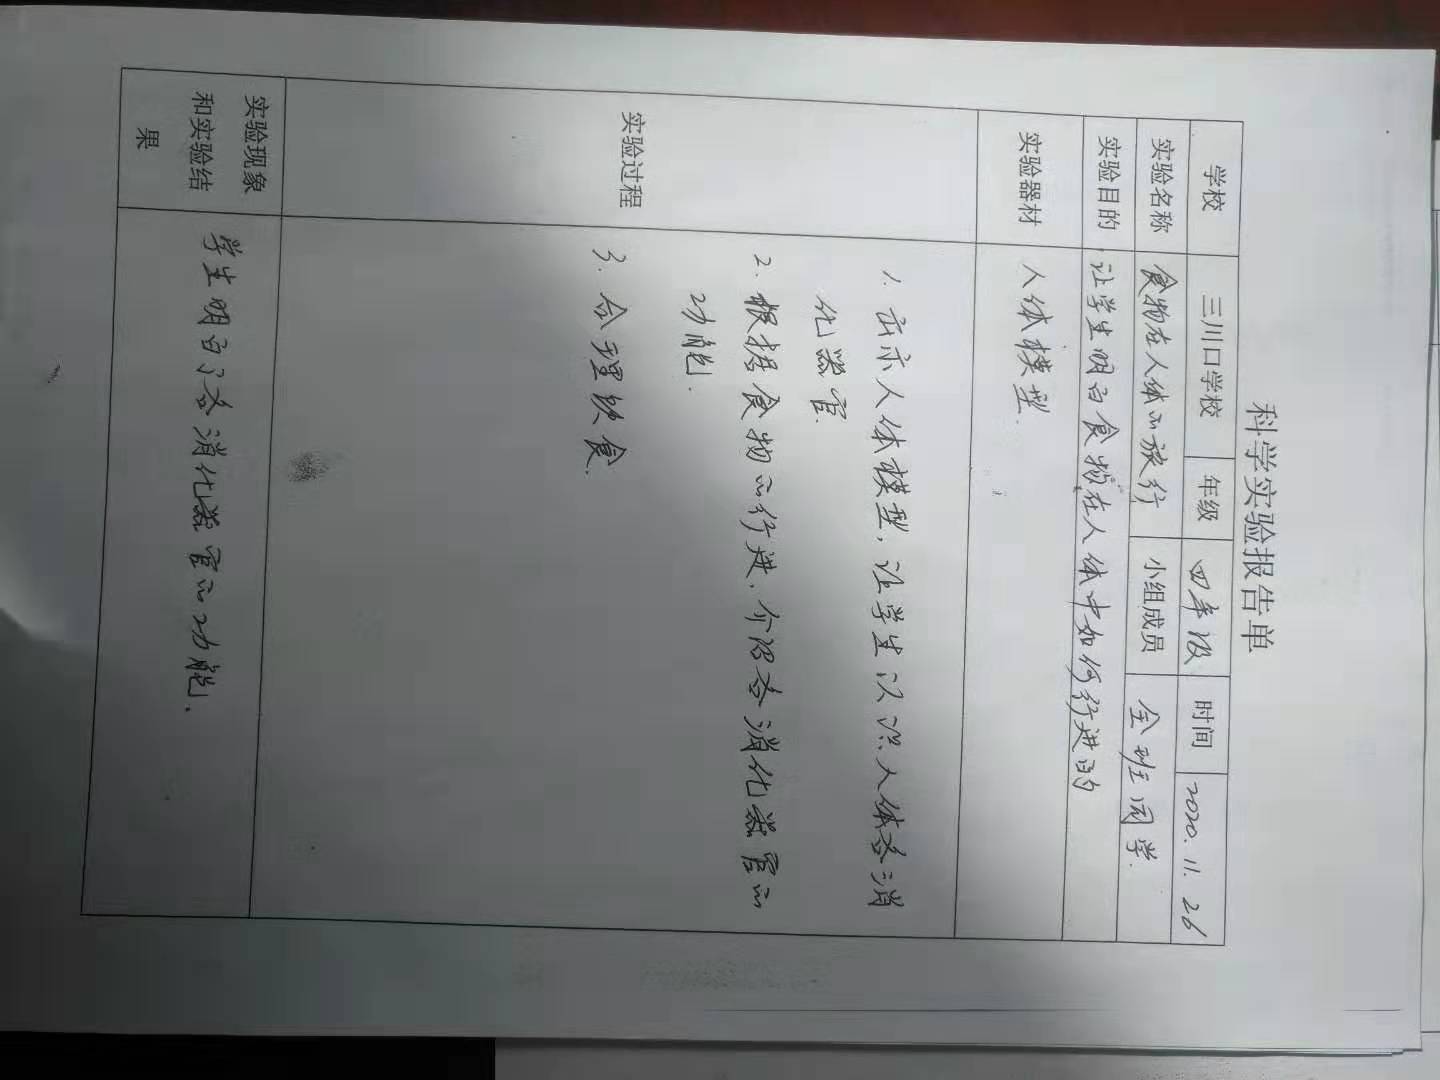 科学实验报告单
学校 三川口学校 年级 四年级 时间 2020.11.26
实验名称 食物在人体的旅行 小组成员 全班同学.
实验目的 让学生明白食物在人体中如何行进的
实验器材 人体模型.
实验过程
1. 出示人体模型,让学生认识人体各消
化器官.
2. 根据食物的行进,介绍各消化器官的
功能.
3. 合理饮食.
实验现象
和实验结
果
学生明白了各消化器官的功能.